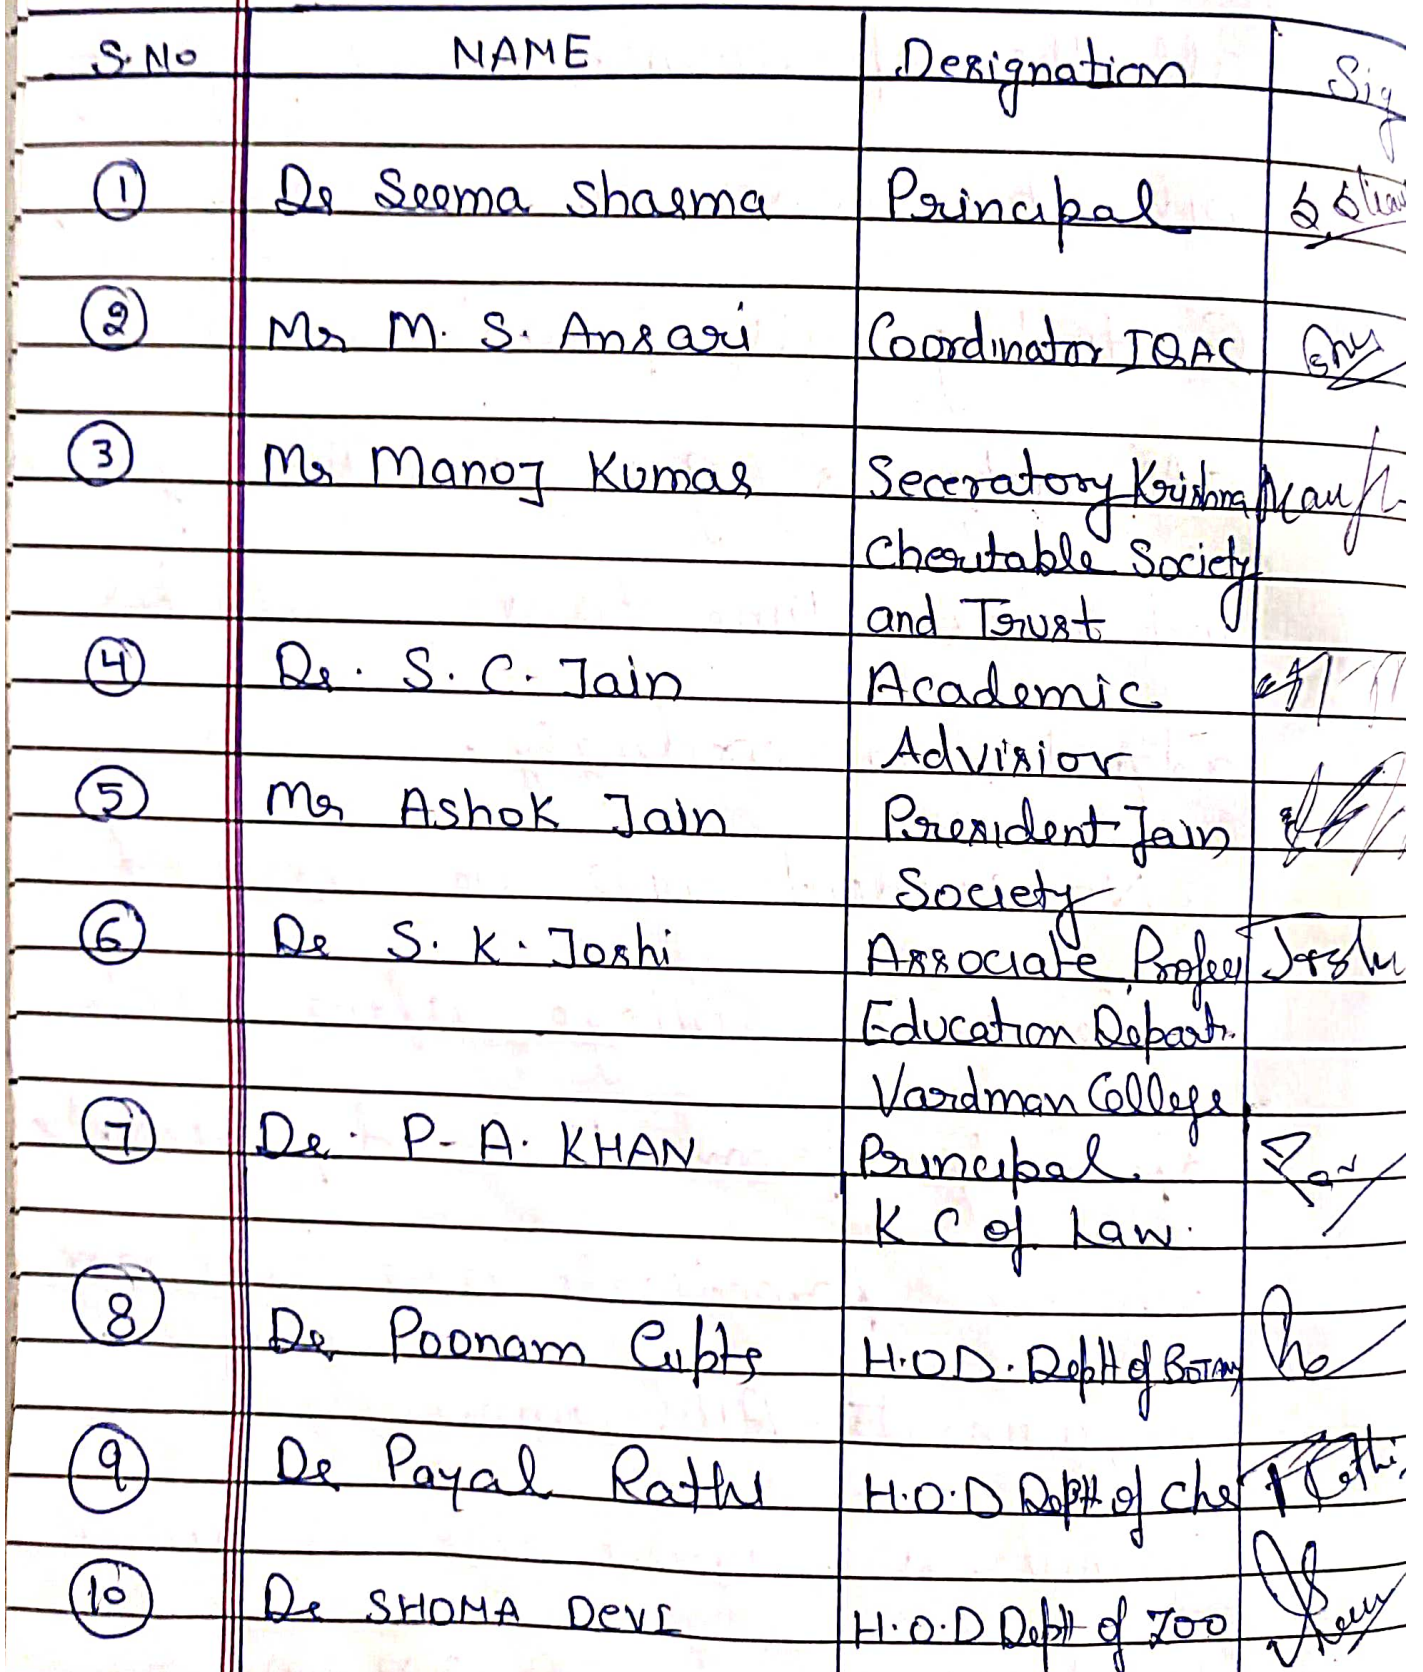 S.No NAME Designation Sig
1 Dr Seema Sharma Principal
2 Mr M. S. Ansari Coordinator IQAC
3 Mr Manoj Kumar Seceratory Krishna
Cheritable Society
and Trust
4 Dr. S. C. Jain Academic
Advisior
5 Mr Ashok Jain President Jain
Society
6 Dr S. K. Joshi Associate Profess Joshi
Education Depart.
Vardman College
7 Dr. P- A. KHAN Principal
K C of Law.
8 Dr Poonam Gupta H.O.D. Deptt of BOTANY
9 Dr Payal Rathi H.O.D Deptt of Che Rathi
10 Dr SHOMA DEVI H.O.D Deptt of ZOO